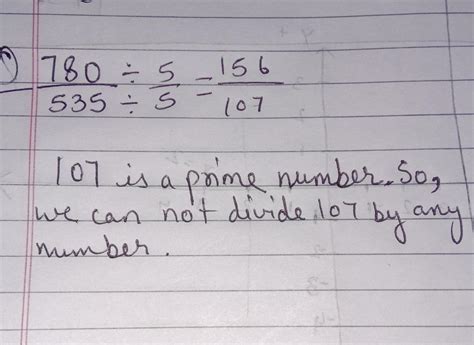 780 ÷ 5 = 156
535 ÷ 5 107
107 is a prime number. So,
we can not divide 107 by any
number.